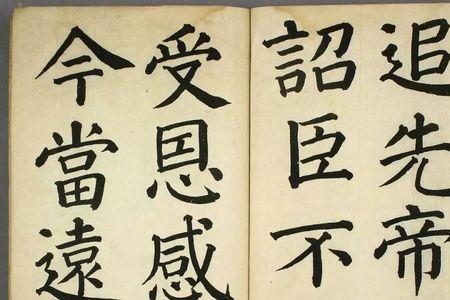 追先帝
詔臣不
受恩感
今當遠